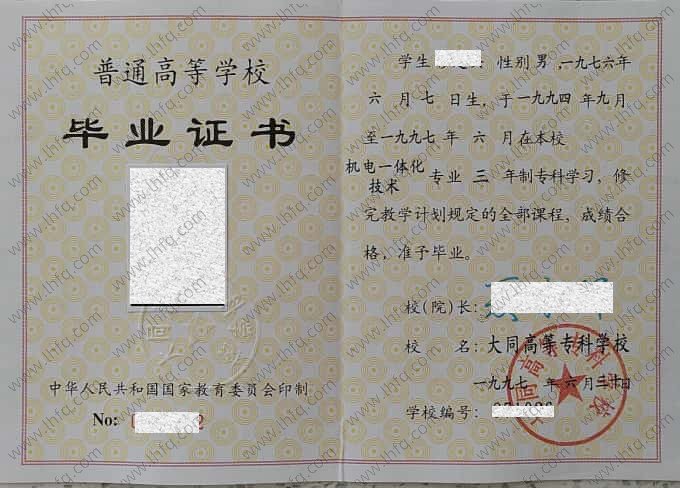 普通高等学校
毕业证书
中华人民共和国国家教育委员会印制
No:
学生 性别 男,一九七六年
六月七日生,于一九九四年九月
至一九九七年六月在本校
机电一体化
技术
专业 三 年制专科学习,修
完教学计划规定的全部课程,成绩合
格,准予毕业。
校(院)长:
校 名:大同高等专科学校
一九九七年六月三十日
学校编号:
大同高等专科学校
www.lhfq.com